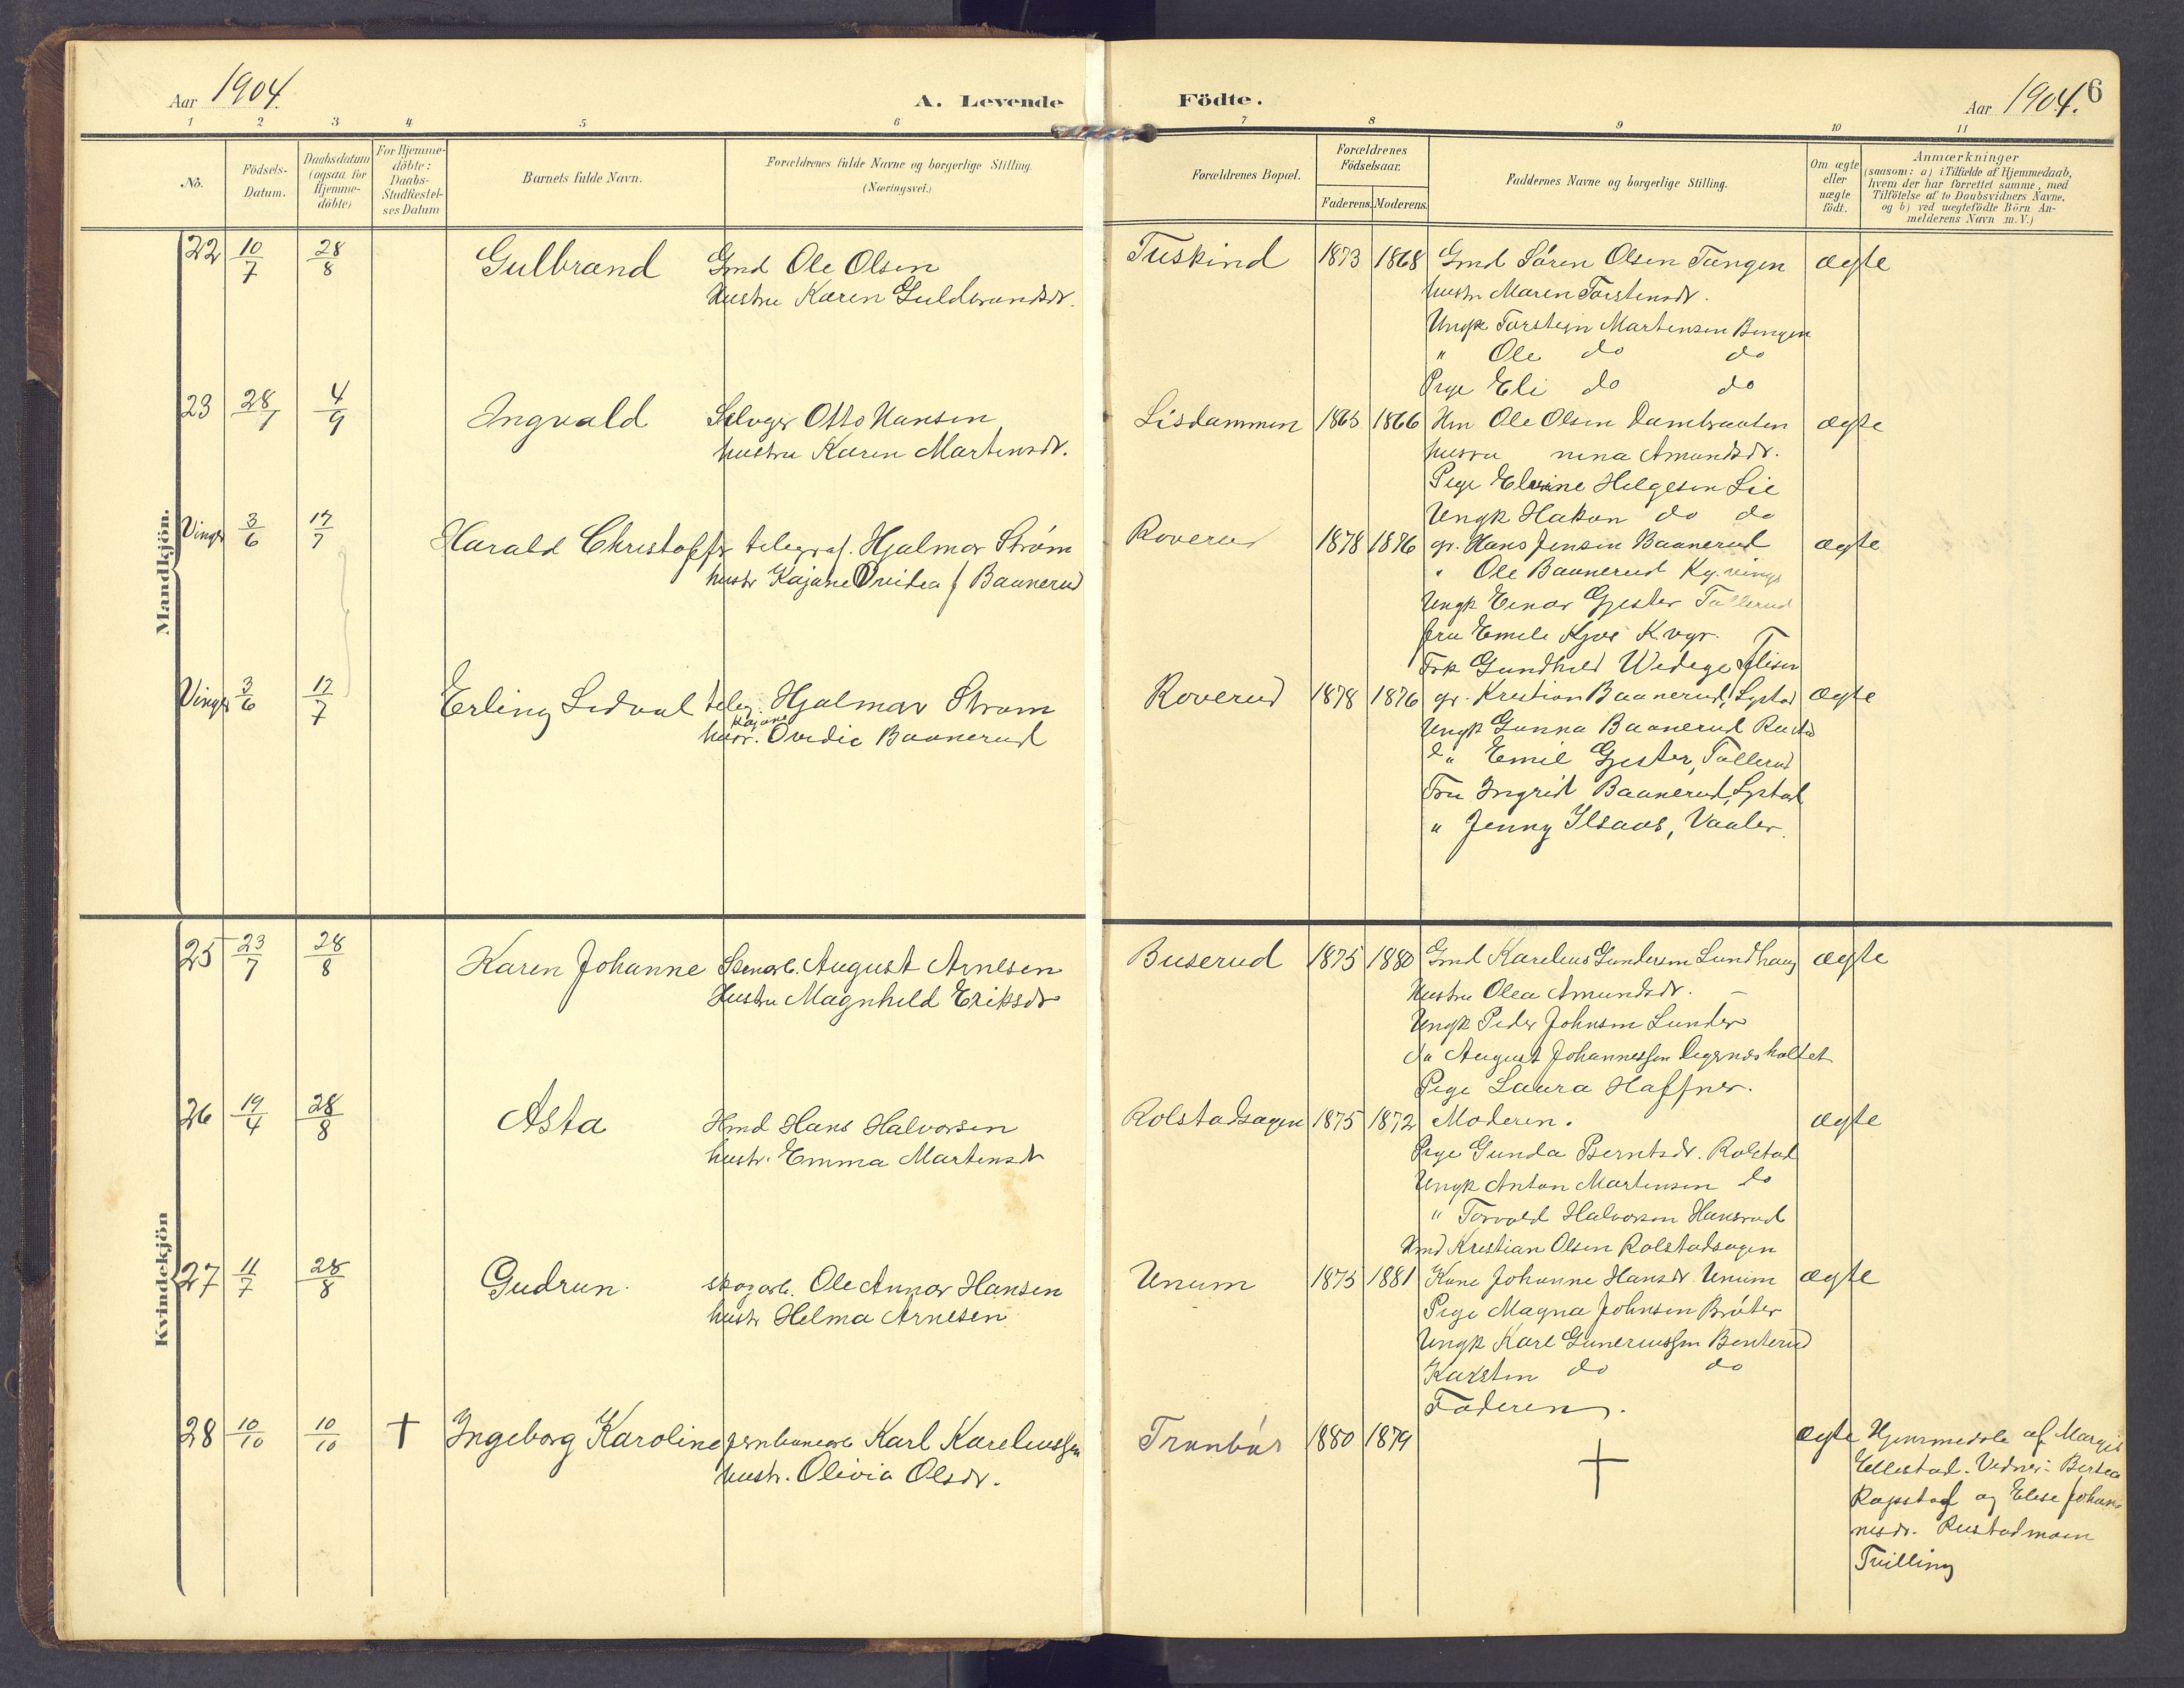 Aar 1904. A. Levende Födte. Aar 1904. 6
1 2 3 4 5 6 7 8 9 10 11
No. Födsels-Datum. Daabsdatum (ogsaa for Hjemme-döbte) For Hjemme-döbte: Daabs-Stadfæstel-ses Datum Barnets fulde Navn. Forældrenes fulde Navne og borgerlige Stilling. (Næringsvei.) Forældrenes Bopæl. Forældrenes Födselsaar. Faderens. Moderens. Faddernes Navne og borgerlige Stilling. Om ægte eller uægte födt. Anmærkninger (saasom: a) i Tilfælde af Hjemmedaab, hvem der har forrettet samme, med Tilföielse af to Daabsvidners Navne, og b) ved uægtefödte Börn An-melderens Navn m. V.)
Mandkjön.
22 10/7 28/8 Gulbrand Gmd Ole Olsen Tuskind 1873 1868 Gmd Sören Olsen Tangen ægte
Hustru Karen Guldbrandsdr. hustr Maren Torstensdr.
Ungk Torstein Martensen Bengen
" Ole do do
Pige Eli do do
23 28/7 4/9 Ingvald Selveger Otto Hansen Lisdammen 1865 1866 Hm Ole Olsen Dambraaten ægte
hustru Karen Martinsdr. husru nina Amundsdr.
Pige Elvine Helgesen Lie
Ungk Hakon do do
Vinger 3/6 17/7 Harald Christoffer telegraf. Hjalmar Strøm Roverud 1878 1876 gr. Hans Jensen Baanerud ægte
hustr Kajane Ovidea f Baanerud " Ole Baanerud Kg.vinger
Ungk Einar Gjester Tallerud
fru Emile Kjos K.vgr.
Frk Gundhild Wedege Flisen
Vinger 3/6 17/7 Erling Sedval teleg. Hjalmar Strøm Roverud 1878 1876 gr. Kristian Baanerud, Lystad ægte
husr. Kajane Ovedie Baanerud Ungk Gunna Baanerud
do Emil Gjester, Tallerud
Fru Ingrid Baanerud, Lystad
" Jenny Ilsaas, Vaaler.
Kvindekjön
25 23/7 28/8 Karen Johanne Stenarb. August Arnesen Buserud 1875 1880 Gmd Karelius Gundersen Lundhaug ægte
Hustru Magnhild Eriksdr Hustru Olea Amundsdr. –
Ungk Peder Johnsen Lunder
do August Johannessen Digernesholtet
Pige Laura Haffner.
26 19/4 28/8 Asta Hmd Hans Halvorsen Rolstadsagen 1875 1872 Moderen. ægte
hustr. Emma Martinsdr Pige Gunda Berntsdr. Rolstad
Ungk Anton Martinsen do
" Torvald Halvorsen Hansrud
Hmd Kristian Olsen Rolstadsagen
27 11/7 28/8 Gudrun. skogarb. Ole Annar Hansen Unum 1875 1881 Kone Johanne Hansdr Unum ægte
hustr Helma Arnesen Pige Magna Johnsen Bråter
Ungk Karl Guneriussen Benterud
Karsten do do
Faderen.
28 10/10 10/10 † Ingeborg Karoline jernbanearb Karl Kareliussen Tranbär 1880 1879 † ægte Hjemmedøbt af Margit
hustr. Olivia Olsdr. Ellestad. Vidner: Bertea
Rapstad og Elise Johan-
nesdr. Rustadmoen
Tvilling